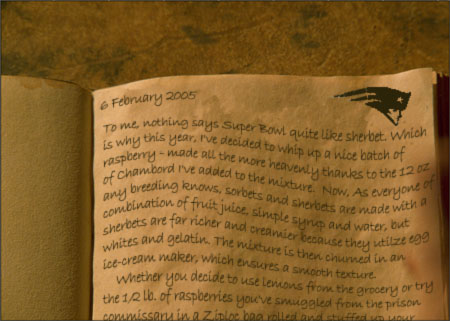 6 February 2005
To me, nothing says Super Bowl quite like sherbet. Which
is why this year, I've decided to whip up a nice batch of
raspberry - made all the more heavenly thanks to the 12 oz
of Chambord I've added to the mixture. Now, As everyone of
any breeding knows, sorbets and sherbets are made with a
combination of fruit juice, simple syrup and water, but
sherbets are far richer and creamier because they utilze egg
whites and gelatin. The mixture is then churned in an
ice-cream maker, which ensures a smooth texture.
Whether you decide to use lemons from the grocery or try
the 1/2 lb. of raspberries you've smuggled from the prison
commissary in a Ziploc bag rolled and stuffed up your